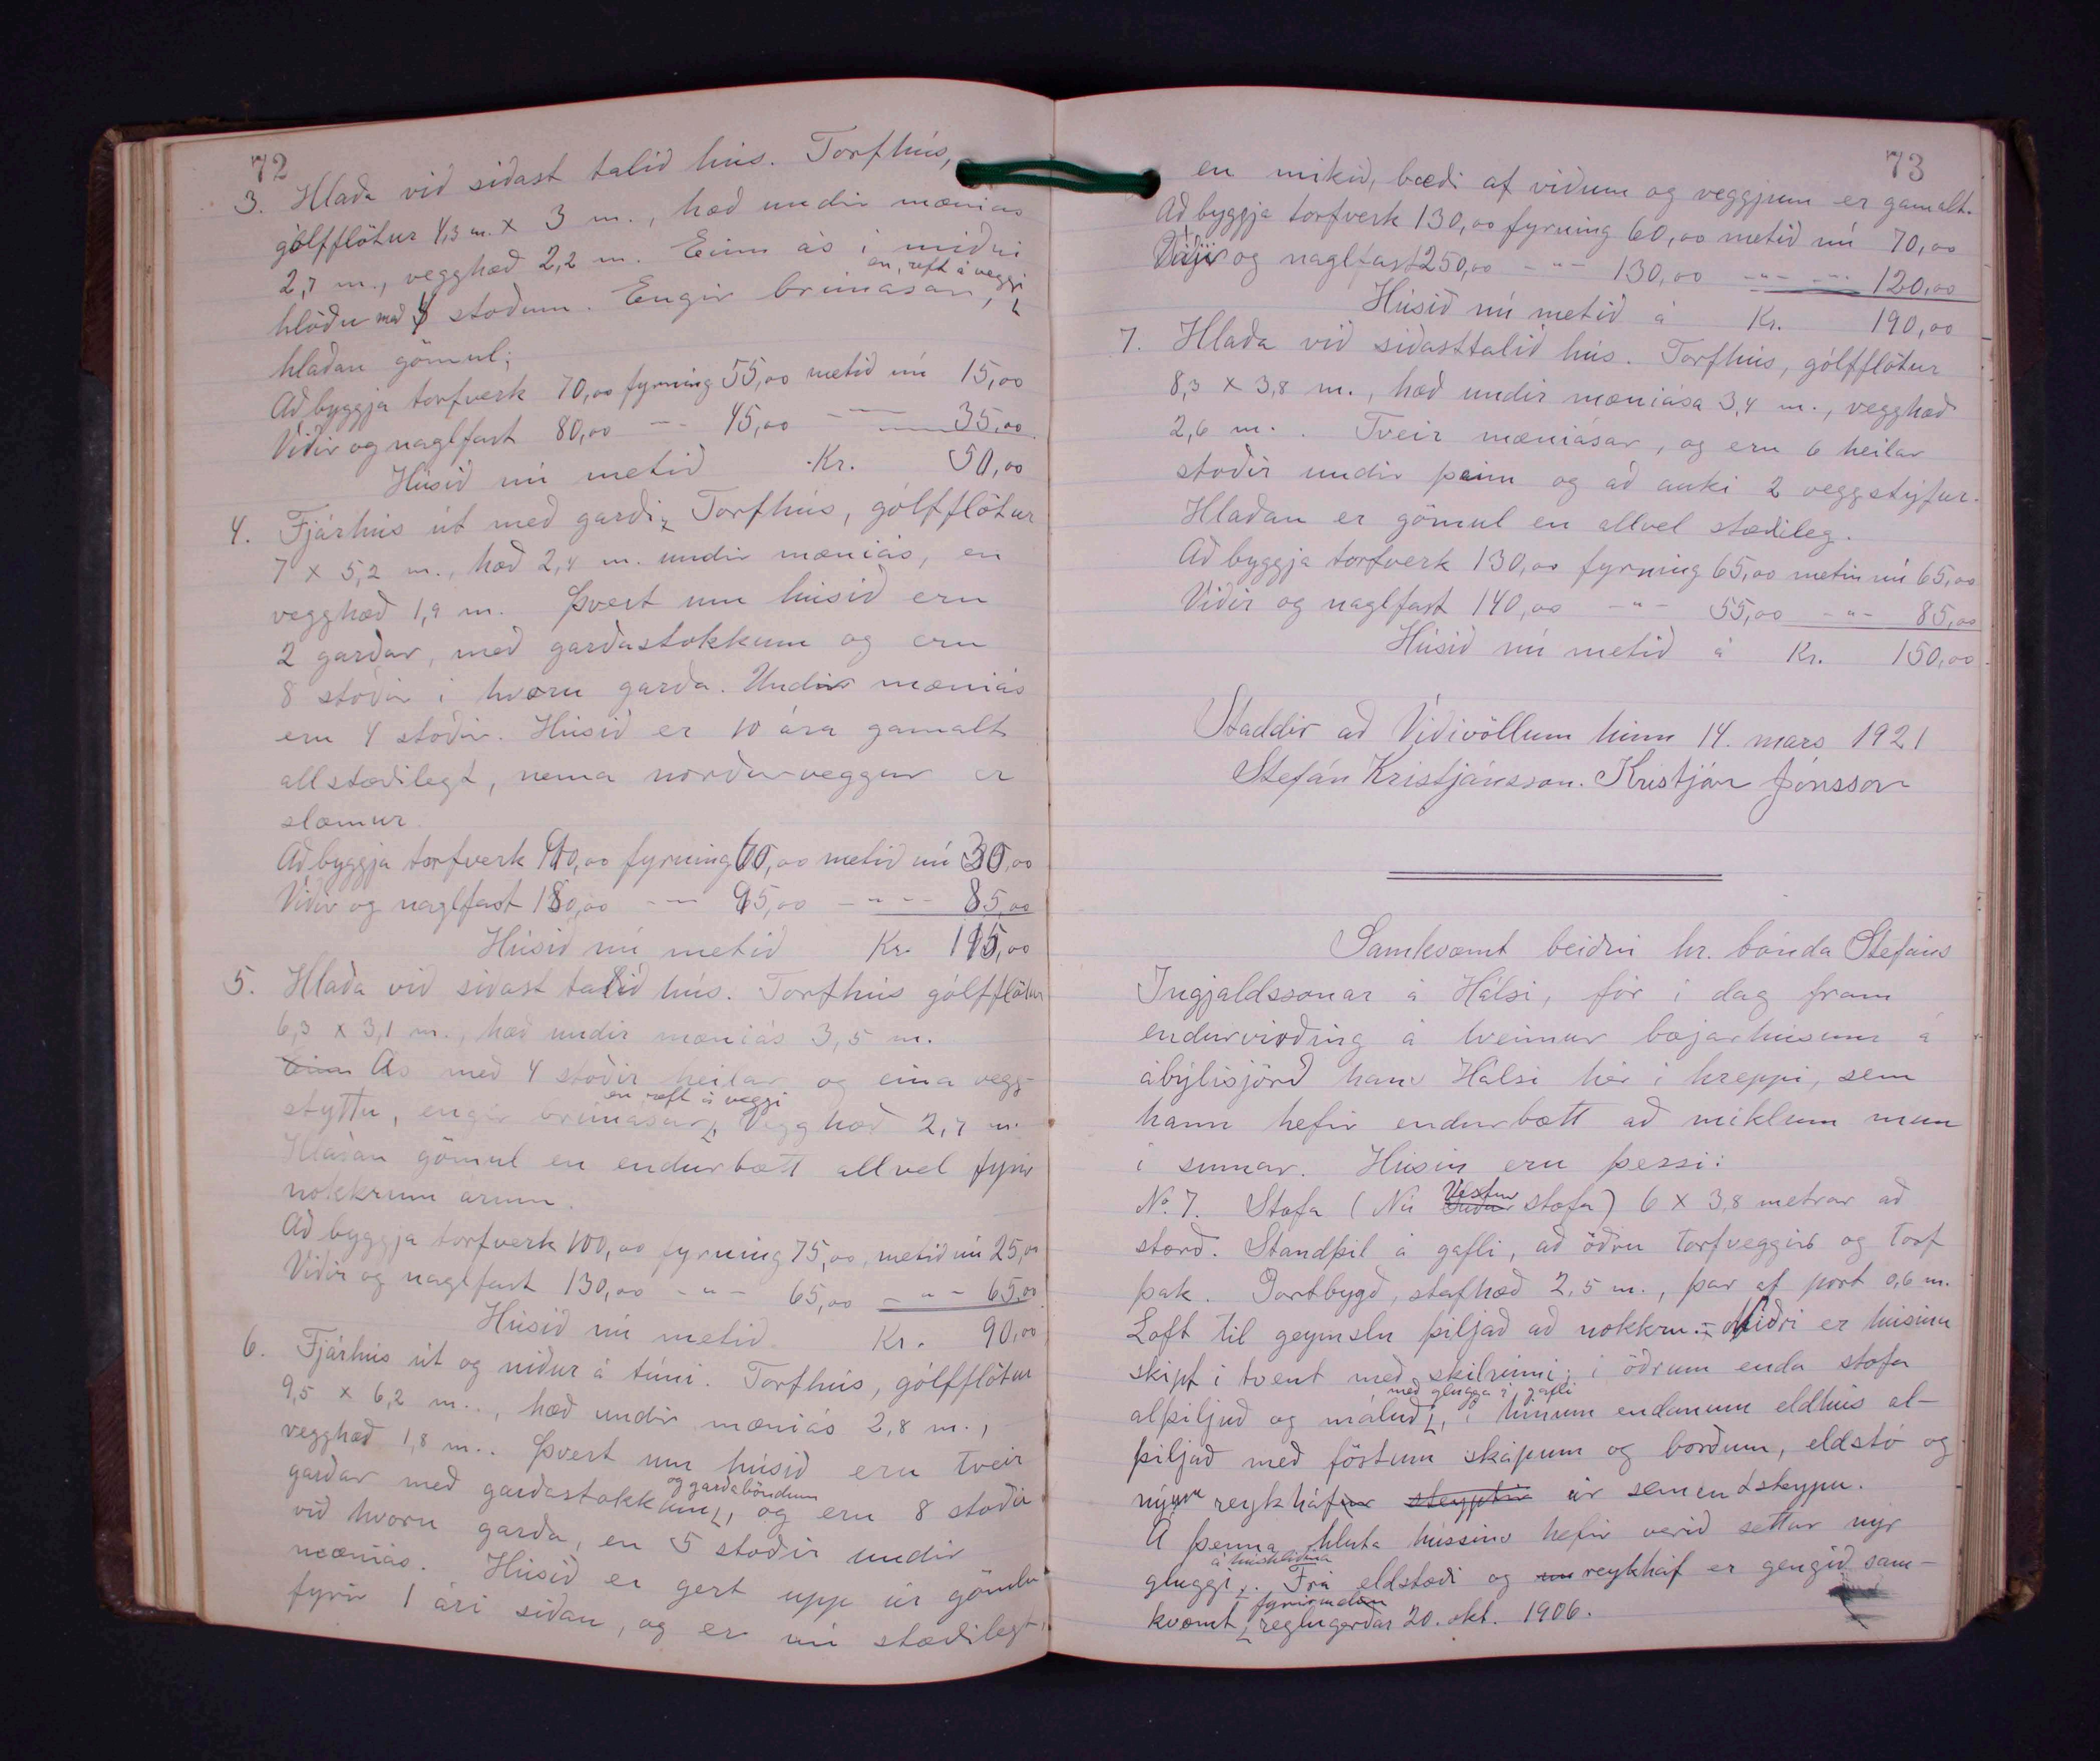 72
3. Hlaða við síðast talið hús. Torfhús,
gólfflötur 4,3 m. x 3 m., hæð undir mæniás
2,7 m., vegghæð 2,2 m. Einn ás í miðri
hlöðu með 4 stoðum. Engir brúnásar, en reft á veggi,
hlaðan gömul;
Að byggja torfverk 70,00 fyrning 55,00 metið nú 15,00
Viðir og naglfast 80,00 -"- 45,00 -"- 35,00
Húsið nú metið Kr. 50,00
4. Fjárhús út með garði. Torfhús, gólfflötur
7 x 5,2 m., hæð 2,4 m. undir mæniás, en
vegghæð 1,9 m. Þvert um húsið eru
2 garðar, með garðastokkum og eru
8 stoðir í hvoru garða. Undir mæniás
eru 4 stoðir. Húsið er 10 ára gamalt
allstæðilegt, nema norðurveggur er
slæmur.
Að byggja torfverk 90,00 fyrning 60,00 metið nú 30,00
Viðir og naglfast 180,00 -"- 95,00 -"- 85,00
Húsið nú metið Kr. 115,00
5. Hlaða við síðast talið hús. Torfhús gólfflötur
6,3 x 3,1 m., hæð undir mæniás 3,5 m.
Einn Ás með 4 stoðir heilar og eina vegg-
styttu, engir brúnásar, en reft á veggi. Vegghæð 2,7 m.
Hlaðan gömul en endurbætt allvel fyrir
nokkrum árum.
Að byggja torfverk 100,00 fyrning 75,00, metið nú 25,00
Viðir og naglfast 130,00 -"- 65,00 -"- 65,00
Húsið nú metið Kr. 90,00
6. Fjárhús út og niður á túni. Torfhús, gólfflötur
9,5 x 6,2 m., hæð undir mæniás 2,8 m.,
vegghæð 1,8 m.. Þvert um húsið eru tveir
garðar með garðastokkum, og garðaböndum og eru 8 stoðir
við hvorn garða, en 5 stoðir undir
mæniás. Húsið er gert upp úr gömlu
fyrir 1 ári síðan, og er nú stæðilegt,
73
en mikið, bæði af viðum og veggjum er gamalt.
Að byggja torfverk 130,00 fyrning 60,00 metið nú 70,00
Viðir og naglfast 250,00 -"- 130,00 -"- 120,00
Húsið nú metið á Kr. 190,00
7. Hlaða við síðasttalið hús. Torfhús, gólfflötur
8,3 x 3,8 m., hæð undir mæniása 3,4 m., vegghæð
2,6 m.. Tveir mæniásar, og eru 6 heilar
stoðir undir þeim og að auki 2 veggstýfur.
Hlaðan er gömul en allvel stæðileg.
Að byggja torfverk 130,00 fyrning 65,00 metin nú 65,00
Viðir og naglfast 140,00 -"- 55,00 -"- 85,00
Húsið nú metið á Kr. 150,00.
Staddir að Víðivöllum hinn 14. mars 1921
Stefán Kristjánsson. Kristján Jónsson
Samkvæmt beiðni hr. bónda Stefáns
Ingjaldssonar á Hálsi, fór í dag fram
endurvirðing á tveimur bæjarhúsum á
ábýlisjörð hans Hálsi hér í hreppi, sem
hann hefir endurbætt að miklum mun
í sumar. Húsin eru þessi:
No. 7. Stofa (Nú Vestur stofa) 6 x 3,8 metrar að
stærð. Standþil á gafli, að öðru torfveggir og torf
þak. Portbygð, stafhæð 2,5 m., þar af port 0,6 m.
Loft til geymslu þiljað að nokkru. Niðri er húsinu
skipt í tvent með skilrúmi; í öðrum enda stofa
alþiljuð og máluð, með glugga á gafli, í hinum endanum eldhús al-
þiljað með föstum skápum og borðum, eldstó og
nýum reykháf steyptur úr sementsteypu.
Á þenna hluta hússins hefir verið settur nýr
gluggi, á húshliðina. Frá eldstæði og reykháf er gengið sam-
kvæmt fyrirmælum reglugerðar 20. okt. 1906.